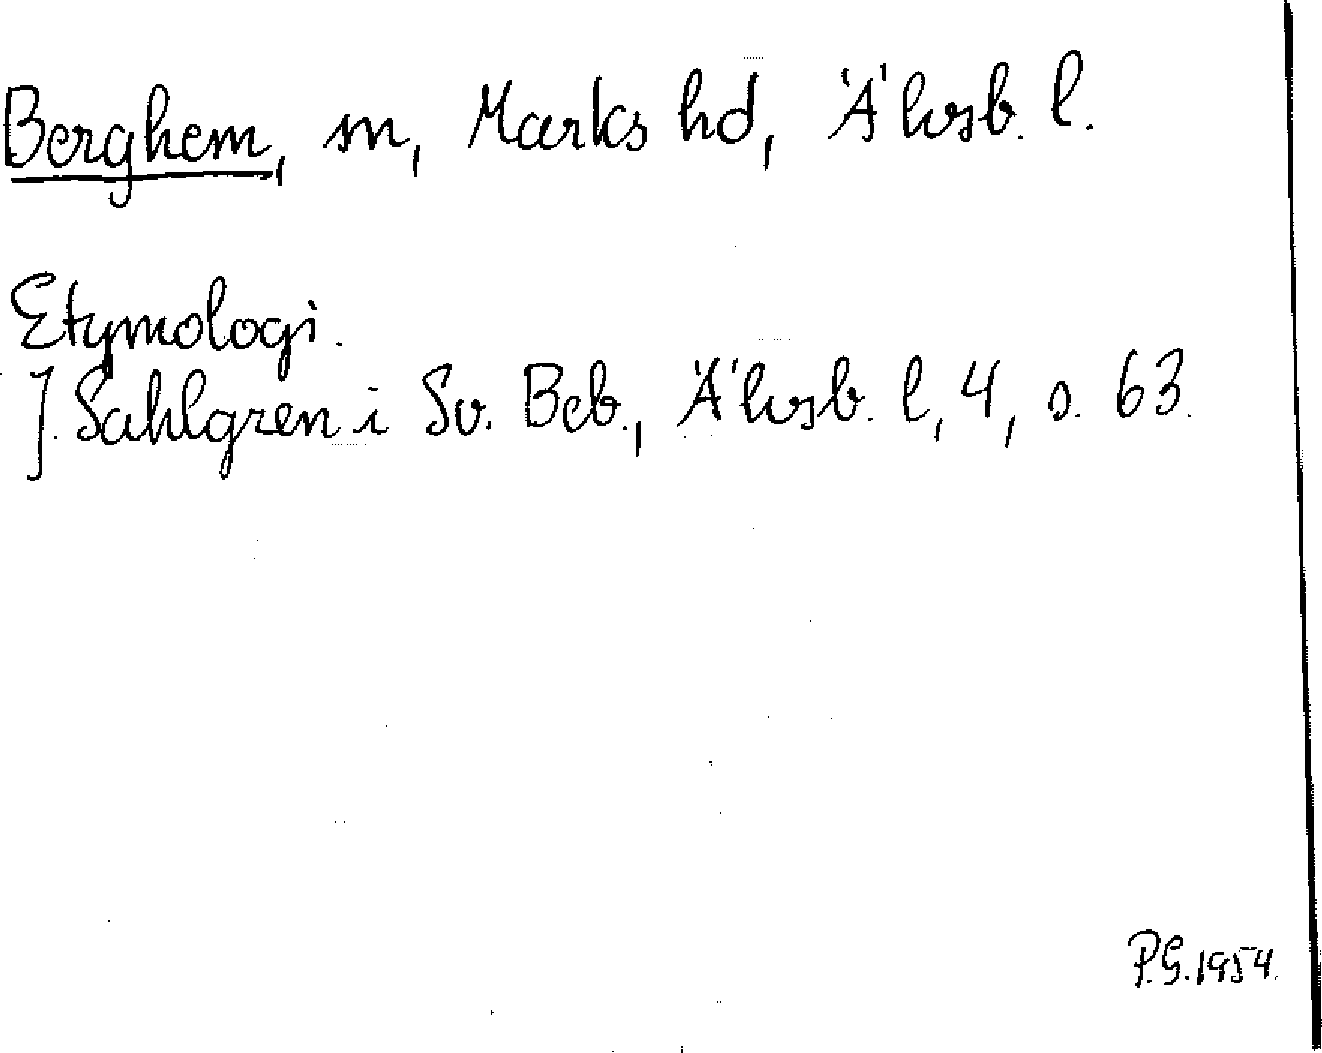 Berghem, sn, Marks hd, Älvsb. l.
Etymologi.
J. Sahlgren i Sv. Beb., Älvsb. l, 4, s. 63.
P.G. 1954.